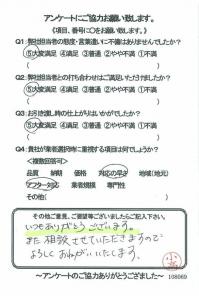 アンケートにご協力お願い致します。
《項目、番号に○をお願い致します。》
Q1: 弊社担当者の態度・言葉遣いに不備はありませんでしたか？
⑤大変満足 ④満足 ③普通 ②やや不満 ①不満
( )
Q2: 弊社担当者との打ち合わせはご満足いただけましたか？
⑤大変満足 ④満足 ③普通 ②やや不満 ①不満
( )
Q3: お引き渡し時の仕上がりはいかがでしたか？
⑤大変満足 ④満足 ③普通 ②やや不満 ①不満
( )
Q4: 貴社が業者選択時に重視する項目は何でしょうか？
<複数回答可>
品質 納期 価格 対応の早さ 地域(地元)
アフター対応 業者規模 専門性
その他( )
その他ご意見、ご要望等ございましたらご記入下さい。
いつもありがとうございます。
また相談させていただきますので
よろしくおねがいいたします。
～アンケートのご協力ありがとうございました～
108069